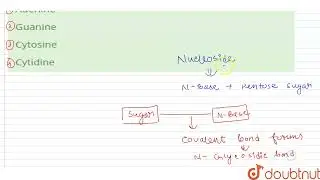 ① Adenine
② Guanine
③ Cytosine
④ Cytidine
Nucleoside
N-Base + Pentose Sugar
Sugar
N-Base
Covalent bond forms
N-Glycosidic bond
doubtnut